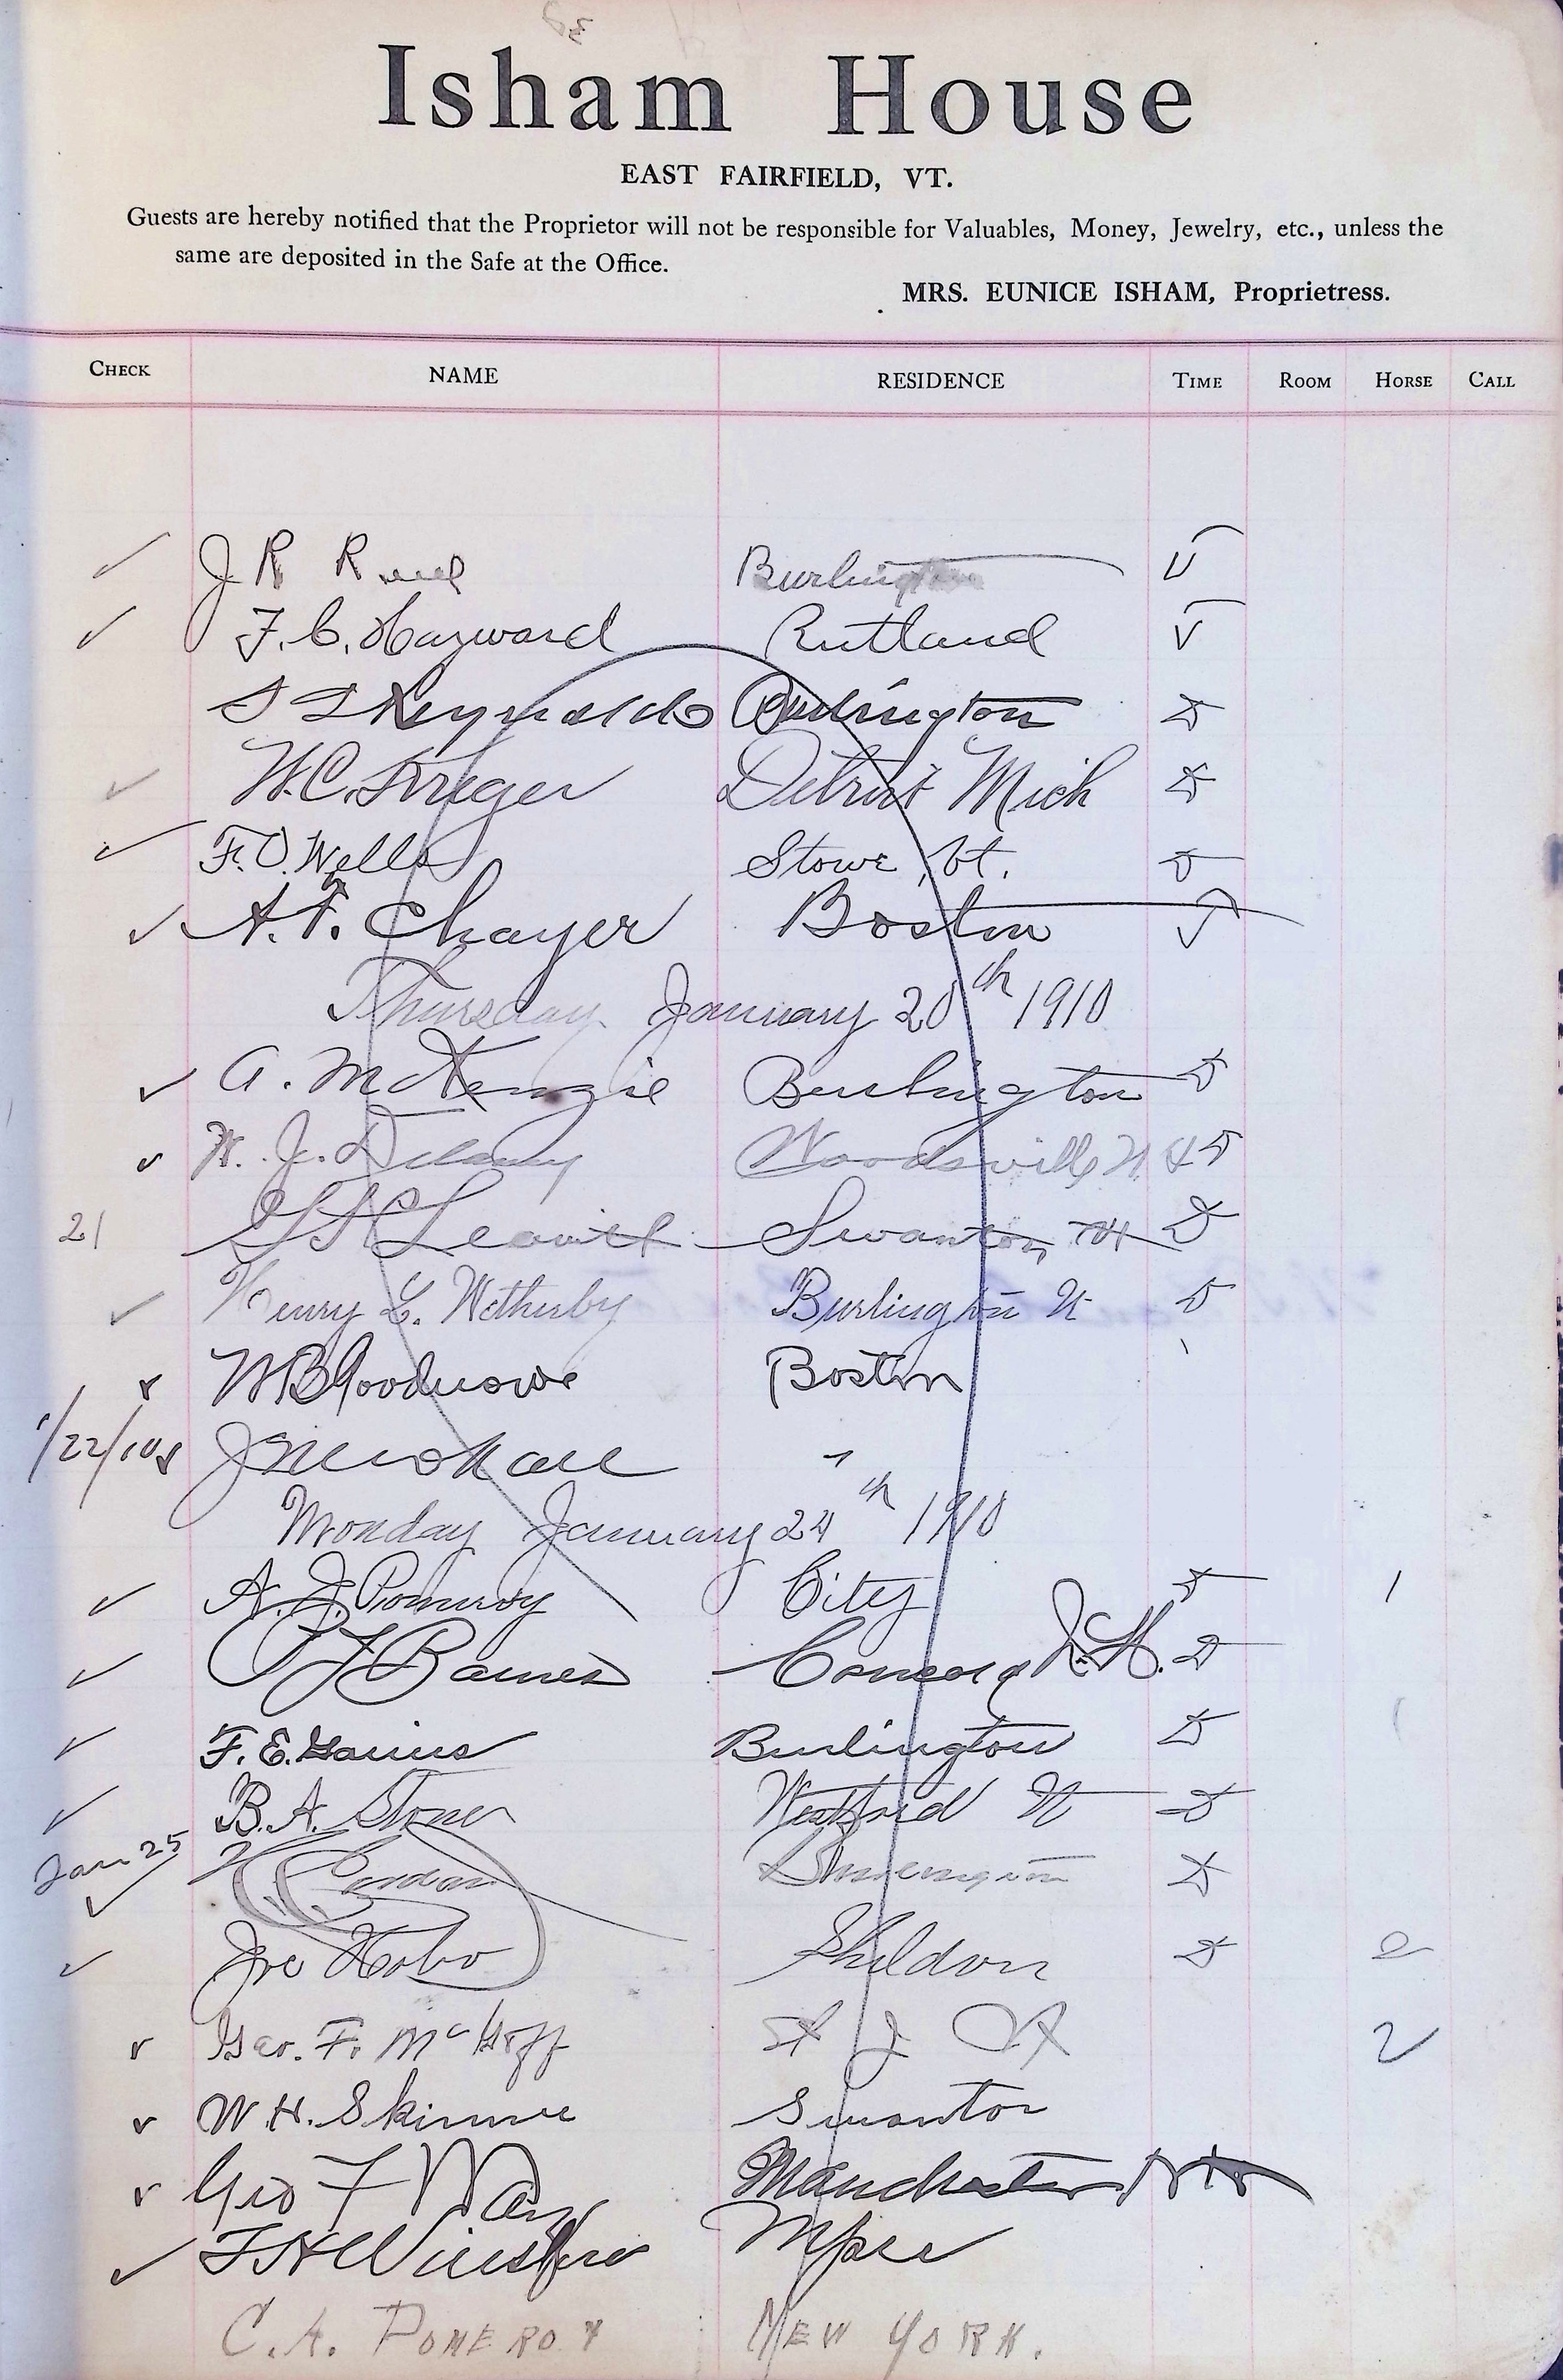 Isham House
EAST FAIRFIELD, VT.
Guests are hereby notified that the Proprietor will not be responsible for Valuables, Money, Jewelry, etc., unless the
same are deposited in the Safe at the Office.
MRS. EUNICE ISHAM, Proprietress.
CHECK NAME RESIDENCE TIME ROOM HORSE CALL
J R Burlington
F. C. Hayward Rutland
Reynolds Burlington
W. C. Kreger Detroit Mich
F. O. Wells Stowe, Vt.
A. F. Chayer Boston
Thursday January 20th 1910
A. McKenzie Burlington
W. J. Delany Woodsville N H
21 Leavitt Swanton Vt
Henry L. Wetherby Burlington Vt
W B Goodnowe Boston
1/22/10 "
Monday January 24th 1910
A. J. Pomeroy City 1
Barnes Concord N. H.
F. E. Burlington
B. A. Stone Westford Vt
Jan 25
Joe Hobo Sheldon 2
Geo. F. McGoff St J Vt 2
W. H. Skinner Swanton
Geo F Way Manchester N H
Mpre
C. A. POMEROY NEW YORK.